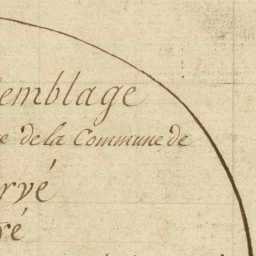 semblage
de la Commune de
rvé
ré